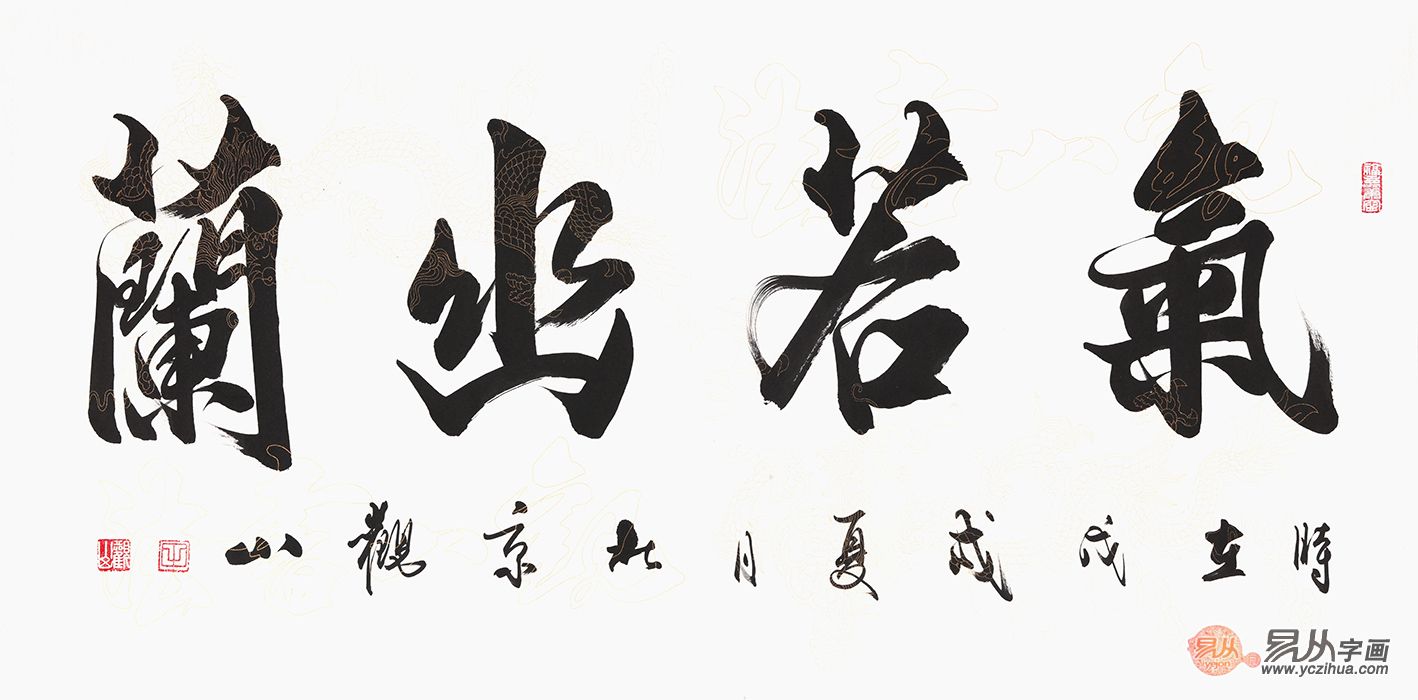 氣若幽蘭
時在戊戌夏月北京觀山
易从字画
www.yczihua.com
易从
yicjon